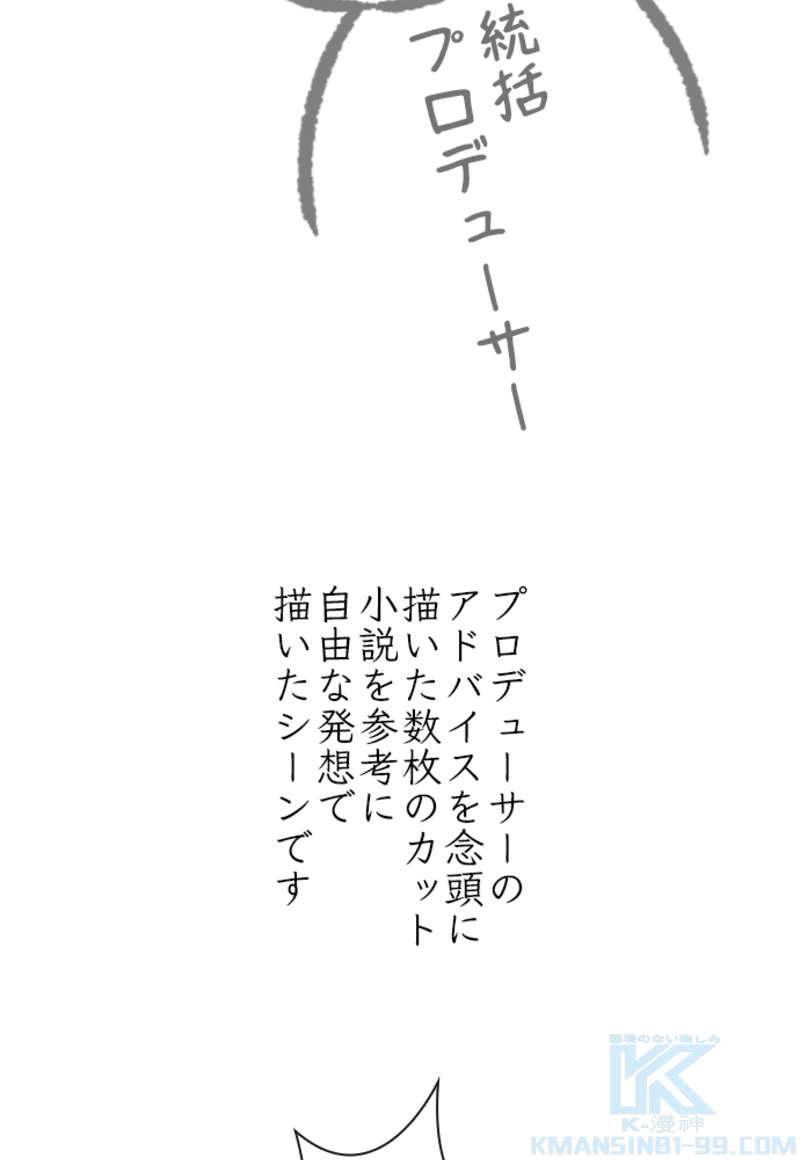 統括
プロデューサー
プロデューサーの
アドバイスを念頭に
描いた数枚のカット
小説を参考に
自由な発想で
描いたシーンです
最後のない楽しみ
K-漫神
KMANSIN01-99.COM